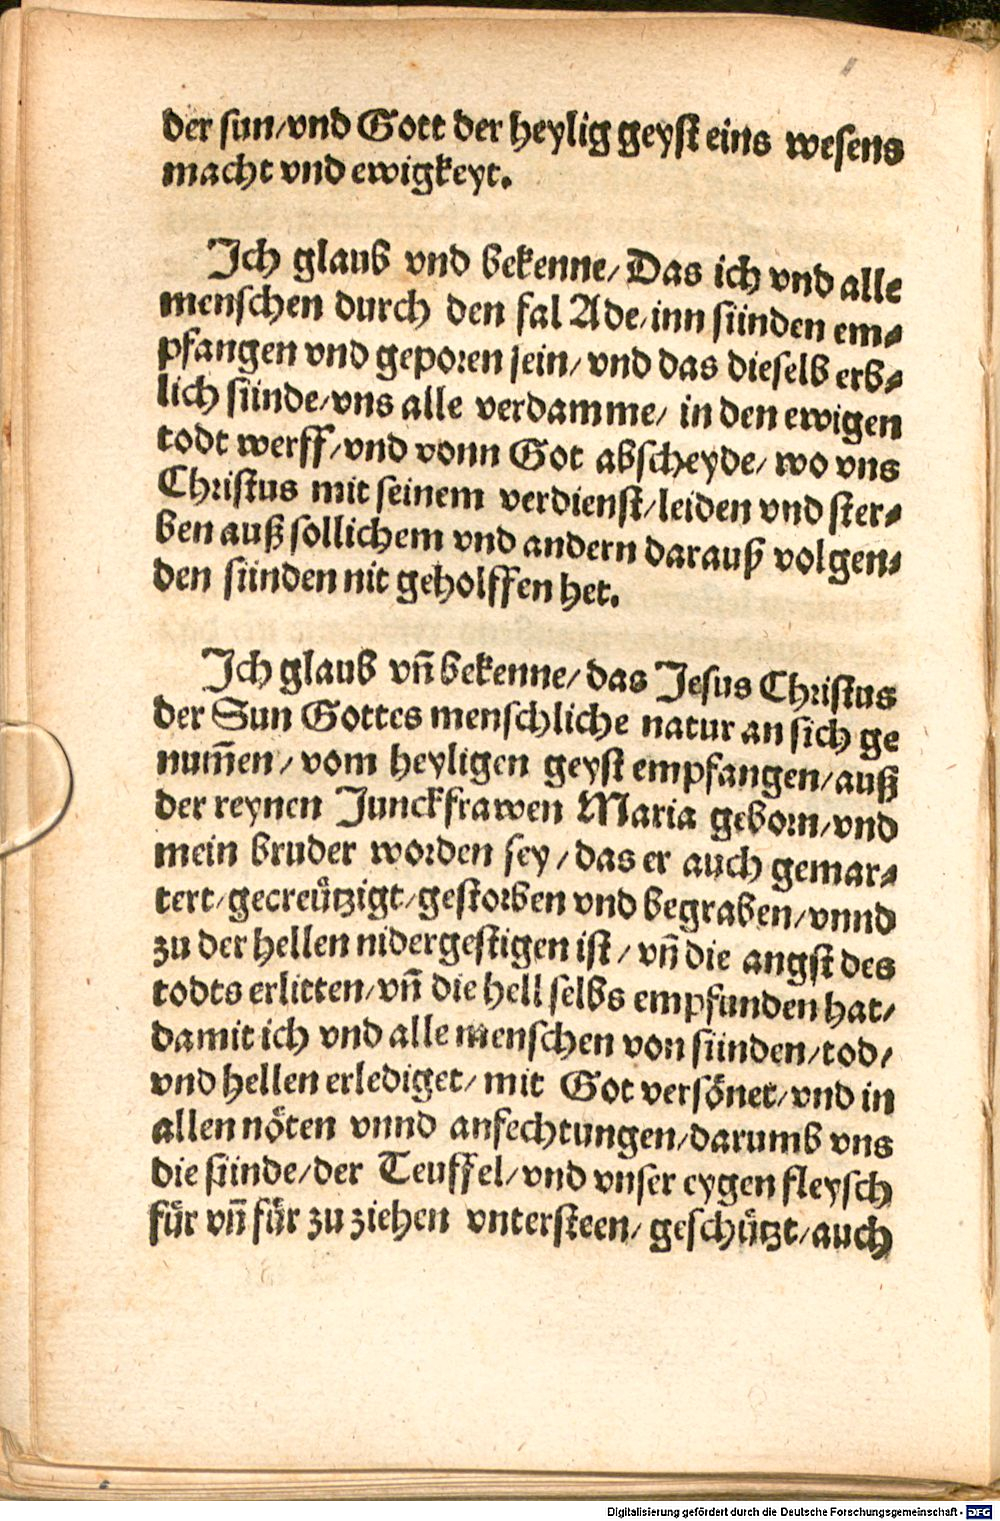 der sun/vnd Gott der heylig geyst eins wesens
macht vnd ewigkeyt.
Ich glaub vnd bekenne/ Das ich vnd alle
menschen durch den fal Ade/inn sünden em⸗
pfangen vnd geporen sein/ vnd das dieselb erb⸗
lich sünde/vns alle verdamme/ in den ewigen
todt werff/vnd vonn Got abscheyde/ wo vns
Christus mit seinem verdienst/leiden vnd ster⸗
ben auß sollichem vnd andern darauß volgen⸗
den sünden nit geholffen het.
Ich glaub vn̄ bekenne/ das Jesus Christus
der Sun Gottes menschliche natur an sich ge
num̄en/ vom heyligen geyst empfangen/auß
der reynen Junckfrawen Maria geborn/vnd
mein bruder worden sey/das er auch gemar⸗
tert/gecreuͤtzigt/gestorben vnd begraben/vnnd
zu der hellen nidergestigen ist/ vn̄ die angst des
todts erlitten/vn̄ die hell selbs empfunden hat/
damit ich vnd alle menschen von sünden/tod/
vnd hellen erlediget/ mit Got versoͤnet/vnd in
allen noͤten vnnd anfechtungen/darumb vns
die sünde/der Teuffel/vnd vnser eygen fleysch
fuͤr vn̄ fuͤr zu ziehen vntersteen/ geschuͤtzt/auch
Digitalisierung gefördert durch die Deutsche Forschungsgemeinschaft - DFG